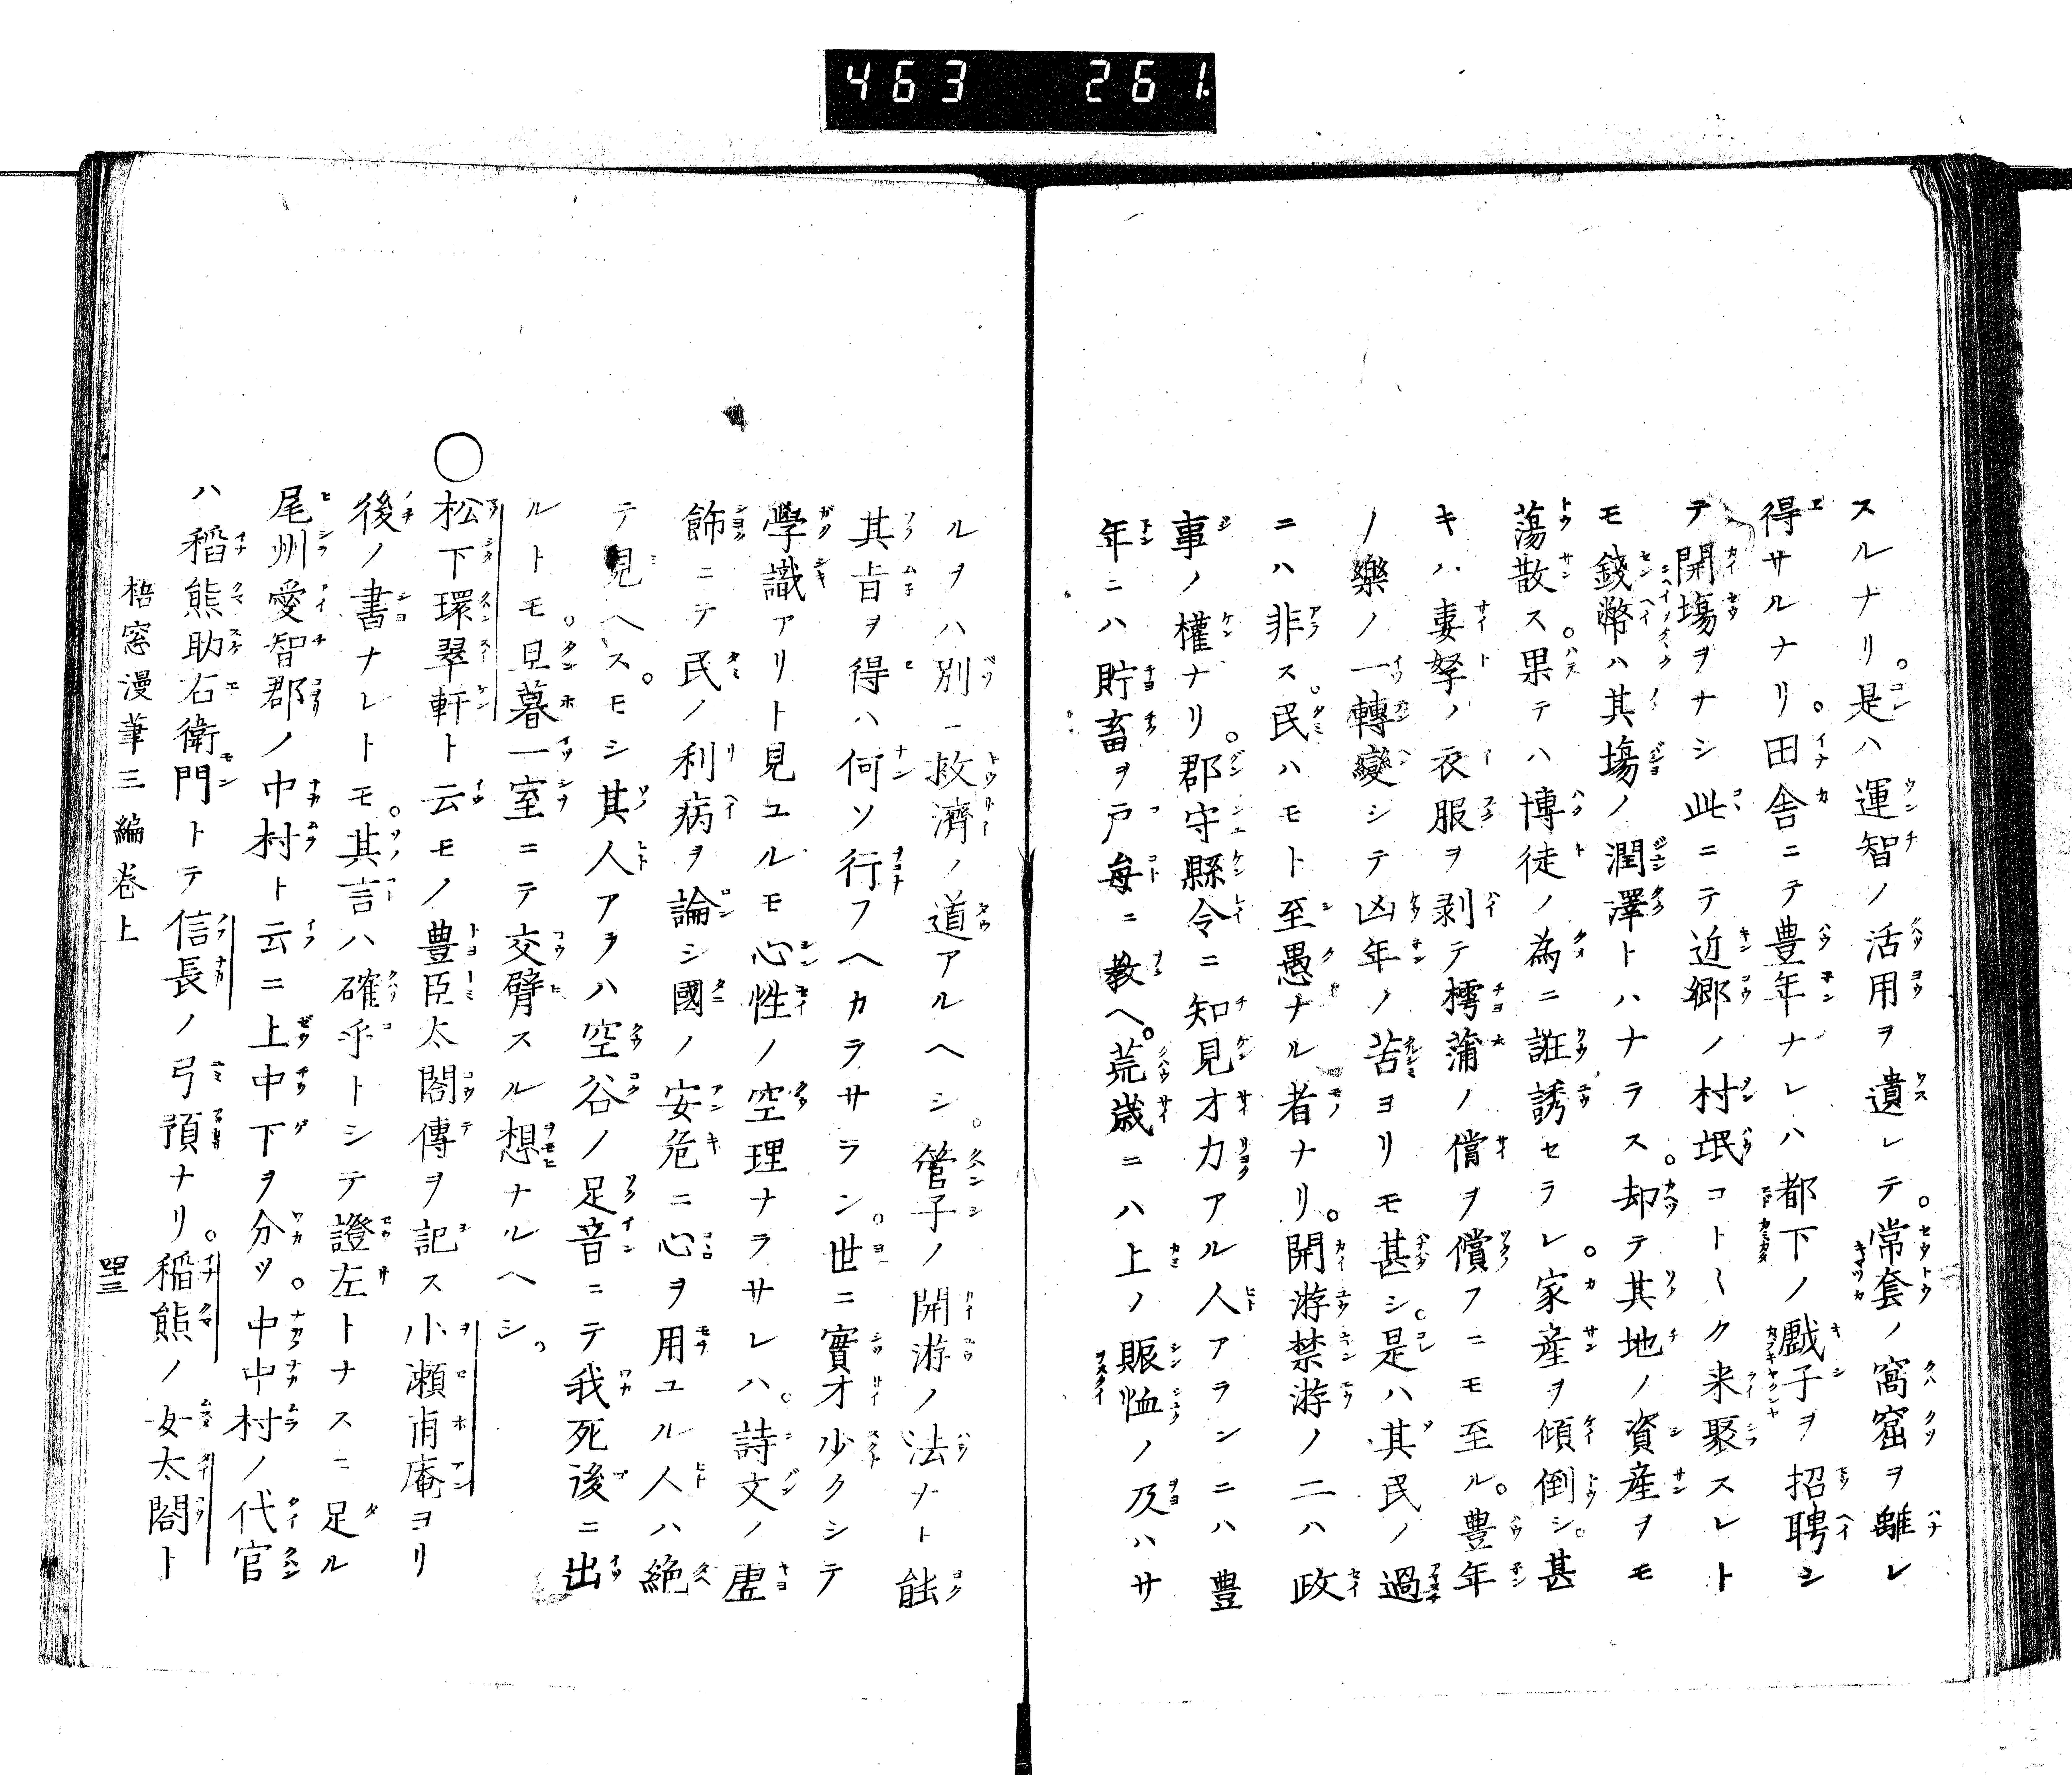 463 261.
スルナリ。是ハ運智ノ活用ヲ遺レテ。常套ノ窩窟ヲ離レ
得サルナリ。田舎ニテ豊年ナレハ都下ノ戯子ヲ招聘シ
テ開場ヲナシ此ニテ近郷ノ村氓コト〱ク来聚スレト
モ錢幣ハ其場ノ潤澤トハナラス。却テ其地ノ資産ヲモ
蕩散ス。果テハ博徒ノ為ニ誑誘セラレ。家産ヲ傾倒シ。甚
キハ妻孥ノ衣服ヲ剥テ樗蒲ノ償ヲ償フニモ至ル。豊年
ノ樂ノ一轉變シテ凶年ノ苦ヨリモ甚シ。是ハ其民ノ過
ニハ非ス。民ハモト至愚ナル者ナリ。開游禁游ノ二ハ政
事ノ權ナリ。郡守縣令ニ知見才力アル人アランニハ豊
年ニハ貯畜ヲ戸毎ニ教ヘ。荒歳ニハ上ノ賑恤ノ及ハサ
ルヲハ別ニ救濟ノ道アルヘシ。管子ノ開游ノ法ナト能
其旨ヲ得ハ何ソ行フヘカラサラン。世ニ實才少クシテ
學識アリト見ユルモ心性ノ空理ナラサレハ。詩文ノ虚
飾ニテ民ノ利病ヲ論シ國ノ安危ニ心ヲ用ユル人ハ絶
テ見ヘス。モシ其人アラハ空谷ノ足音ニテ我死後ニ出
ルトモ。旦暮一室ニテ交臂スル想ナルヘシ。
○松下環翠軒ト云モノ豊臣太閤傳ヲ記ス小瀬甫庵ヨリ
後ノ書ナレトモ。其言ハ確乎トシテ證左トナスニ足ル
尾州愛智郡ノ中村ト云ニ上中下ヲ分ツ。中中村ノ代官
ハ稲熊助右衛門トテ信長ノ弓預ナリ。稲熊ノ女太閤ト
梧窓漫筆三編巻上 四三